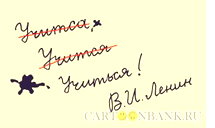 Учитса,
Учится
Учиться!
В.И. Ленин
CARTOONBANK.RU